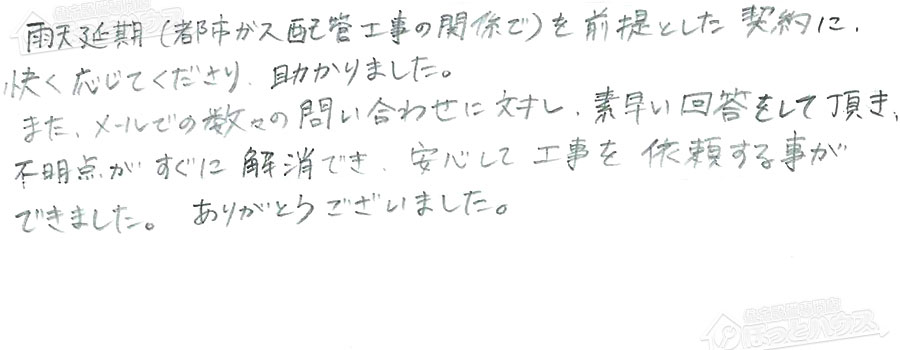 雨天延期(都市ガス配管工事の関係で)を前提とした契約に、
快く応じてくださり、助かりました。
また、メールでの数々の問い合わせに対し、素早い回答をして頂き、
不明点がすぐに解消でき、安心して工事を依頼する事が
できました。ありがとうございました。
住宅設備専門店
ほっとハウス